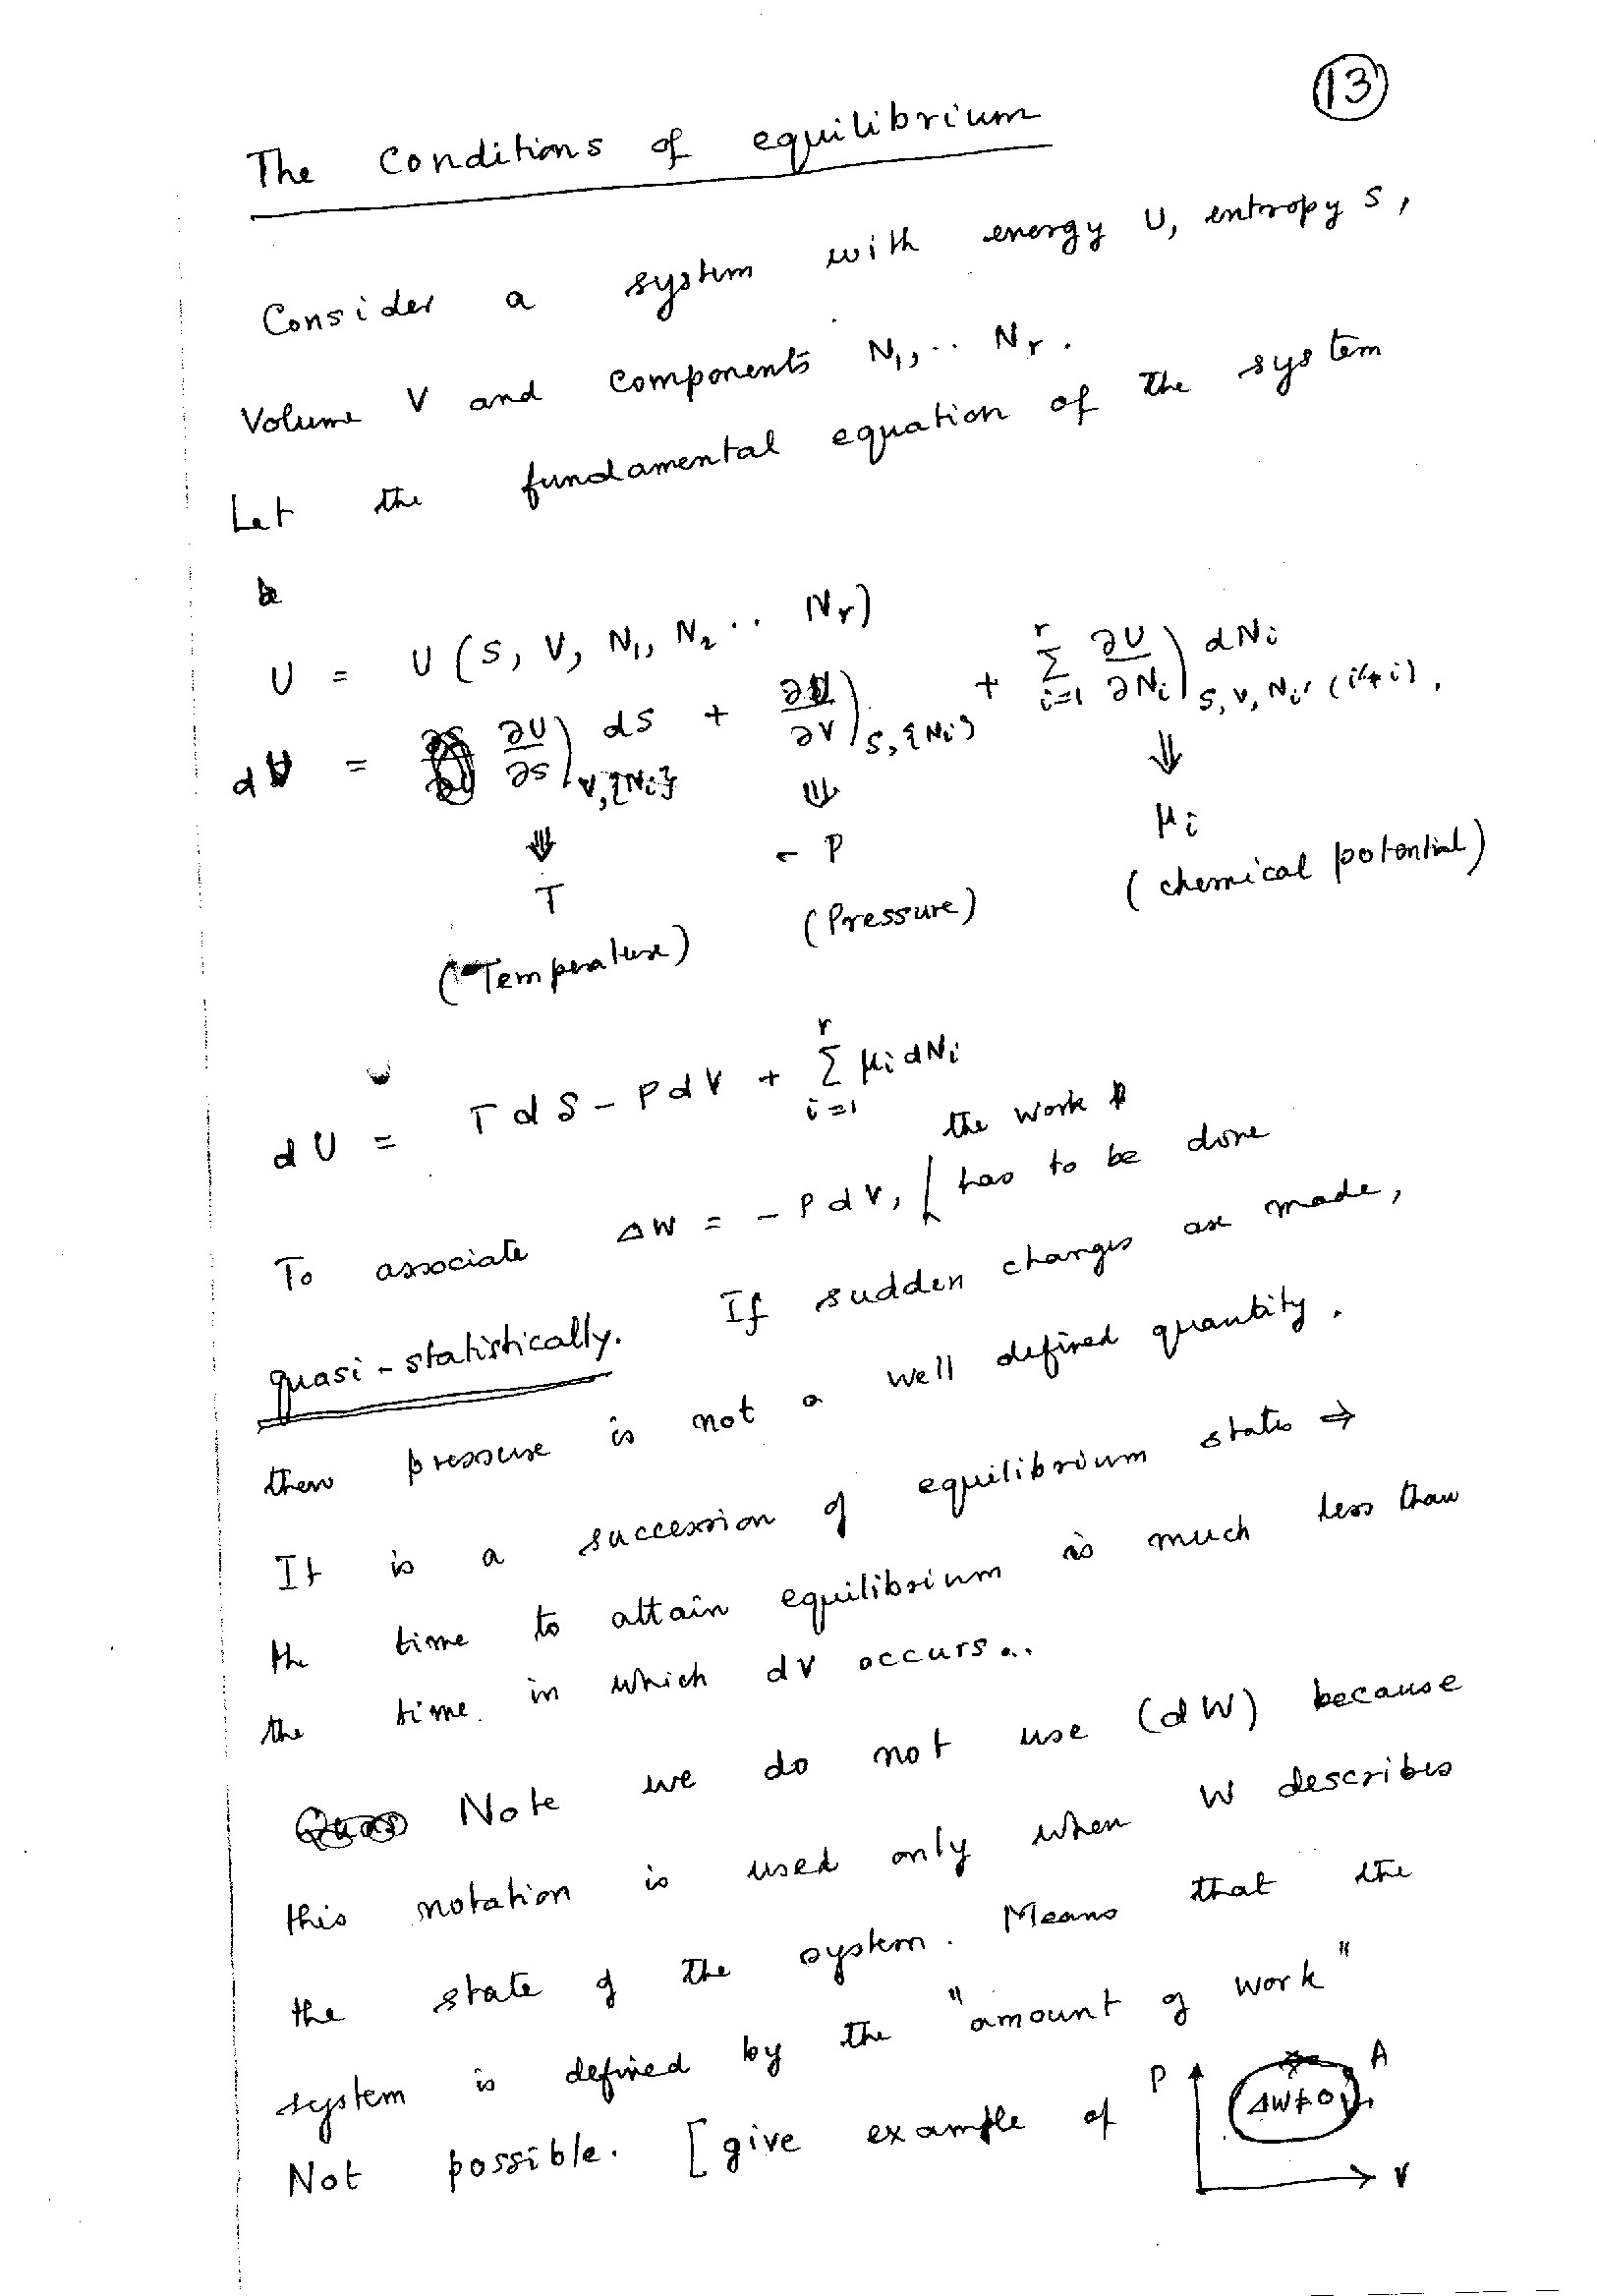 13
The Conditions of equilibrium
Consider a system with energy U, entropy S,
Volume V and components N₁, .. Nᵣ.
Let the fundamental equation of the system
be
U = U (S, V, N₁, N₂ .. Nᵣ)
dU = ∂U/∂S)_V,{Nᵢ} dS + ∂U/∂V)_S,{Nᵢ} + Σ_{i=1}^{r} ∂U/∂Nᵢ)_S,V,Nᵢ′ (i′≠i) dNᵢ.
⇓ ⇓ ⇓
T - P μᵢ
(Temperature) (Pressure) (chemical potential)
dU = TdS - PdV + Σ_{i=1}^{r} μᵢdNᵢ
To associate ΔW = - PdV, the work has to be done
quasi-statistically. If sudden changes are made,
then pressure is not a well defined quantity.
It is a succession of equilibrium states ⇒
the time to attain equilibrium is much less than
the time in which dV occurs..
Note we do not use (dW) because
this notation is used only when W describes
the state of the system. Means that the
system is defined by the "amount of work"
Not possible. [give example of
P
A
ΔW≠0
V